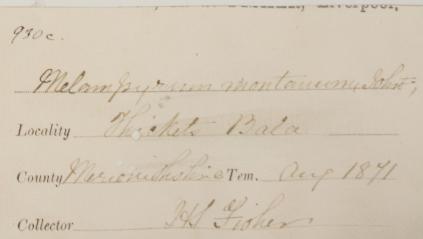 Liverpool,
930c.
Melampyrum montanum, Johnst,
Locality Thickets Bala
County Merionethshire Tem. Aug 1871
Collector HS Fisher